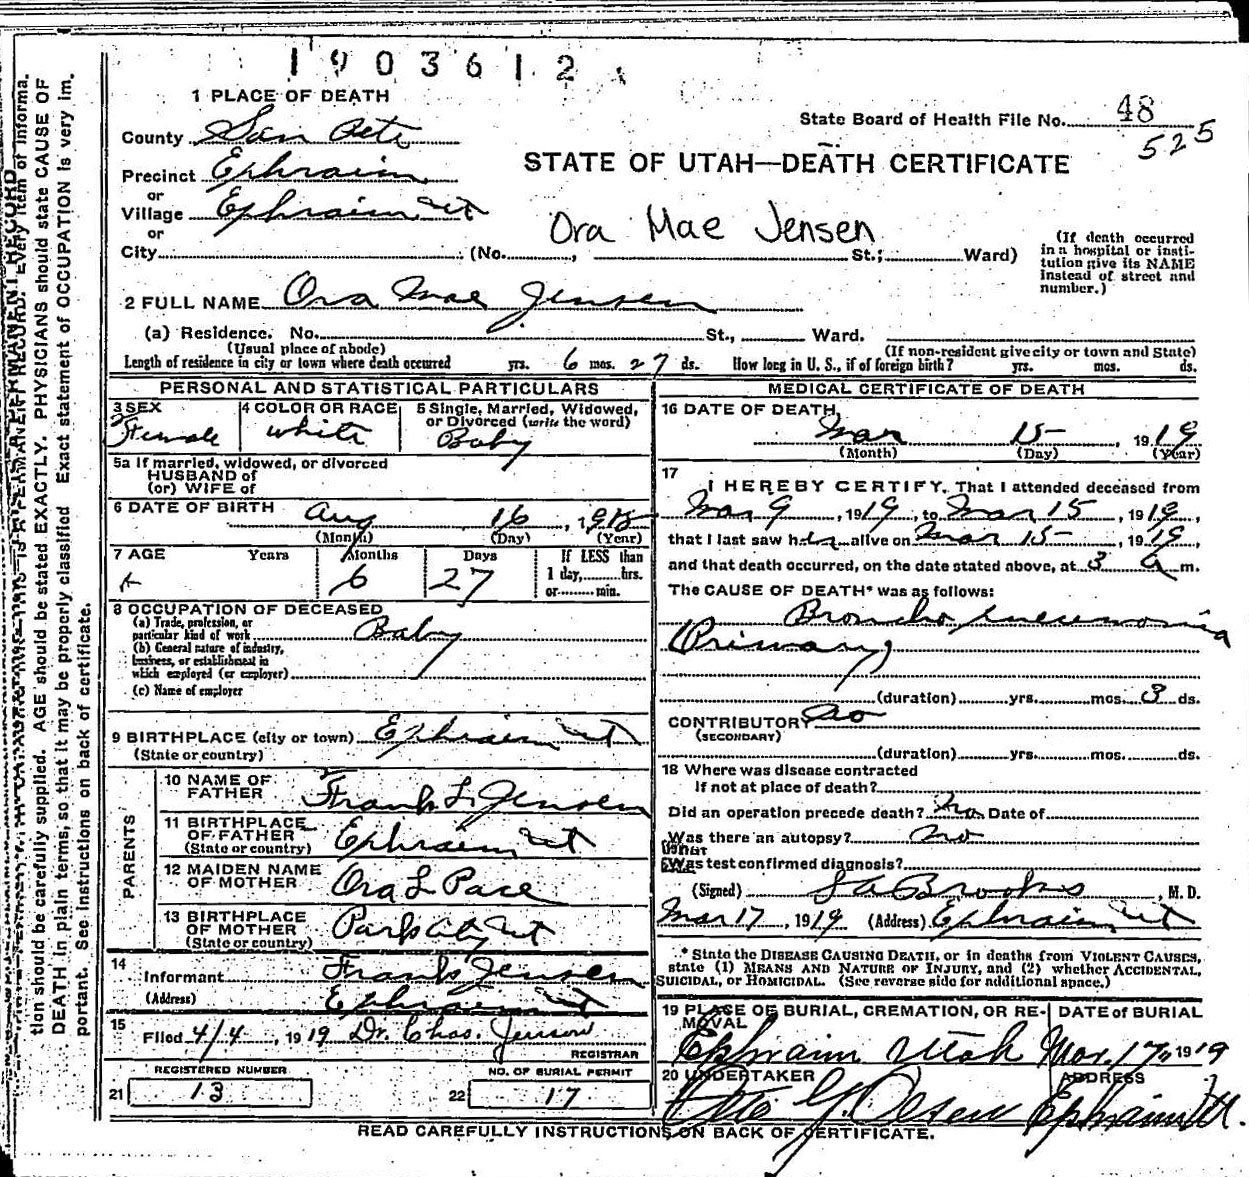 1903612
1 PLACE OF DEATH
State Board of Health File No. 48
525
County San Pete
STATE OF UTAH—DEATH CERTIFICATE
Precinct Ephraim
or
Village Ephraim Ut
or
Ora Mae Jensen
City (No. , St.; Ward)
(If death occurred
in a hospital or insti-
tution give its NAME
instead of street and
number.)
2 FULL NAME Ora Mae Jensen
(a) Residence. No. St., Ward.
(Usual place of abode)
(If non-resident give city or town and State)
Length of residence in city or town where death occurred yrs. 6 mos. 27 ds. How long in U. S., if of foreign birth? yrs. mos. ds.
PERSONAL AND STATISTICAL PARTICULARS
3 SEX
Female
4 COLOR OR RACE
White
5 Single, Married, Widowed,
or Divorced (write the word)
Baby
5a If married, widowed, or divorced
HUSBAND of
(or) WIFE of
6 DATE OF BIRTH Aug 16, 1918
(Month) (Day) (Year)
7 AGE Years Months Days If LESS than
6 27 1 day, hrs.
or min.
8 OCCUPATION OF DECEASED
(a) Trade, profession, or
particular kind of work Baby
(b) General nature of industry,
business, or establishment in
which employed (or employer)
(c) Name of employer
9 BIRTHPLACE (city or town) Ephraim Ut
(State or country)
PARENTS
10 NAME OF
FATHER Frank L. Jensen
11 BIRTHPLACE
OF FATHER Ephraim Ut
(State or country)
12 MAIDEN NAME
OF MOTHER Ora L Pace
13 BIRTHPLACE
OF MOTHER Park City Ut
(State or country)
14
Informant Frank Jensen
(Address) Ephraim Ut
15
Filed 4/4, 1919 Dr. Chas. Jenson
REGISTRAR
REGISTERED NUMBER
21 13
NO. OF BURIAL PERMIT
22 17
MEDICAL CERTIFICATE OF DEATH
16 DATE OF DEATH
Mar 15, 1919
(Month) (Day) (Year)
17
I HEREBY CERTIFY, That I attended deceased from
Mar 9, 1919, to Mar 15, 1919,
that I last saw her alive on Mar 15, 1919,
and that death occurred, on the date stated above, at 3 a m.
The CAUSE OF DEATH* was as follows:
Broncho pneumonia
(Primary)
(duration) yrs. mos. 3 ds.
CONTRIBUTORY no
(SECONDARY)
(duration) yrs. mos. ds.
18 Where was disease contracted
If not at place of death?
Did an operation precede death? No Date of
Was there an autopsy? no
What
Was test confirmed diagnosis?
(Signed) Brooks, M. D.
Mar 17, 1919 (Address) Ephraim Ut
* State the DISEASE CAUSING DEATH, or in deaths from VIOLENT CAUSES,
state (1) MEANS AND NATURE OF INJURY, and (2) whether ACCIDENTAL,
SUICIDAL, or HOMICIDAL. (See reverse side for additional space.)
19 PLACE OF BURIAL, CREMATION, OR RE-
MOVAL
Ephraim Utah
DATE of BURIAL
Mar. 17, 1919
20 UNDERTAKER
Olsen
ADDRESS
Ephraim Ut.
READ CAREFULLY INSTRUCTIONS ON BACK OF CERTIFICATE.
tion should be carefully supplied. AGE should be stated EXACTLY. PHYSICIANS should state CAUSE OF
DEATH in plain terms, so that it may be properly classified. Exact statement of OCCUPATION is very im-
portant. See instructions on back of certificate.